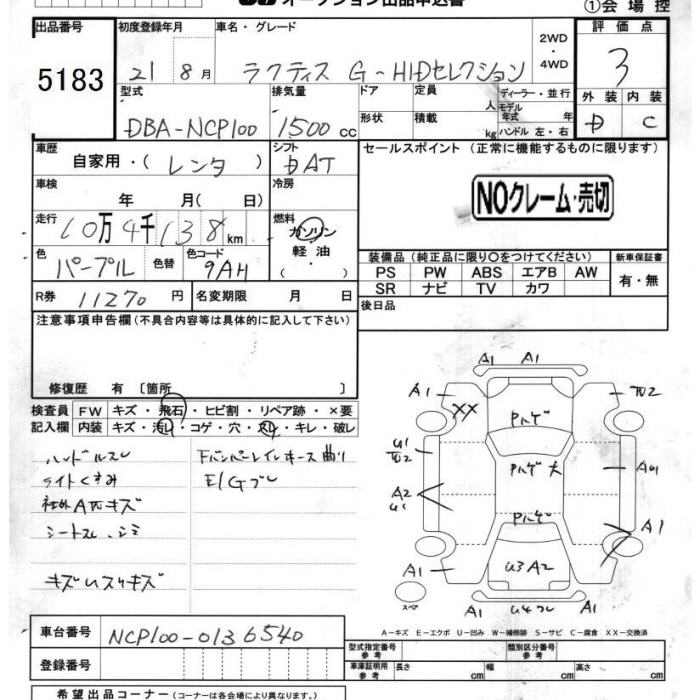 オークション出品申込書
①会場控
出品番号 初度登録年月 車名・グレード 評価点
5183 21 8月 ラクティス G-HIDセレクション 2WD・4WD 3
型式 排気量 ドア 定員 ディーラー・並行 外装 内装
DBA-NCP100 1500cc 人 モデル年式 年 D C
形状 積載 kg ハンドル 左・右
車歴 シフト セールスポイント(正常に機能するものに限ります)
自家用・(レンタ) DAT
車検 冷房
年 月( 日) NOクレーム・売切
走行 燃料
10万4千138km ガソリン
軽油
・( )
色 色替 色コード 装備品(純正品に限り○をつけてください) 新車保証書
パープル 9AH PS PW ABS エアB AW 有・無
SR ナビ TV カワ
R券 11270円 名変期限 月 日 後日品
注意事項申告欄(不具合内容等は具体的に記入して下さい)
修復歴 有 [箇所 ]
検査員記入欄 FW キズ・飛石・ヒビ割・リペア跡・×要
内装 キズ・汚れ・コゲ・穴・スレ・キレ・破レ
ハンドルスレ
ライトくすみ
社外Aキズ
シートスレ、シミ
キズ Uスリキズ
Fバンパーレインホース曲り
E/Gブレ
A1 A1
A1 XX
Pハゲ
U1
Pハゲ大
A2
U1
A1
Pハゲ
A1
U3 A2
A1 A1
スペア
A-キズ E-エクボ U-凹み W-補修跡 S-サビ C-腐食 XX-交換済
車台番号 NCP100-0136540
型式指定番号 参考 類別区分番号 参考
登録番号
車庫証明用 参考 長さ cm 幅 cm 高さ cm
希望出品コーナー(コーナーは各会場により異なります。)